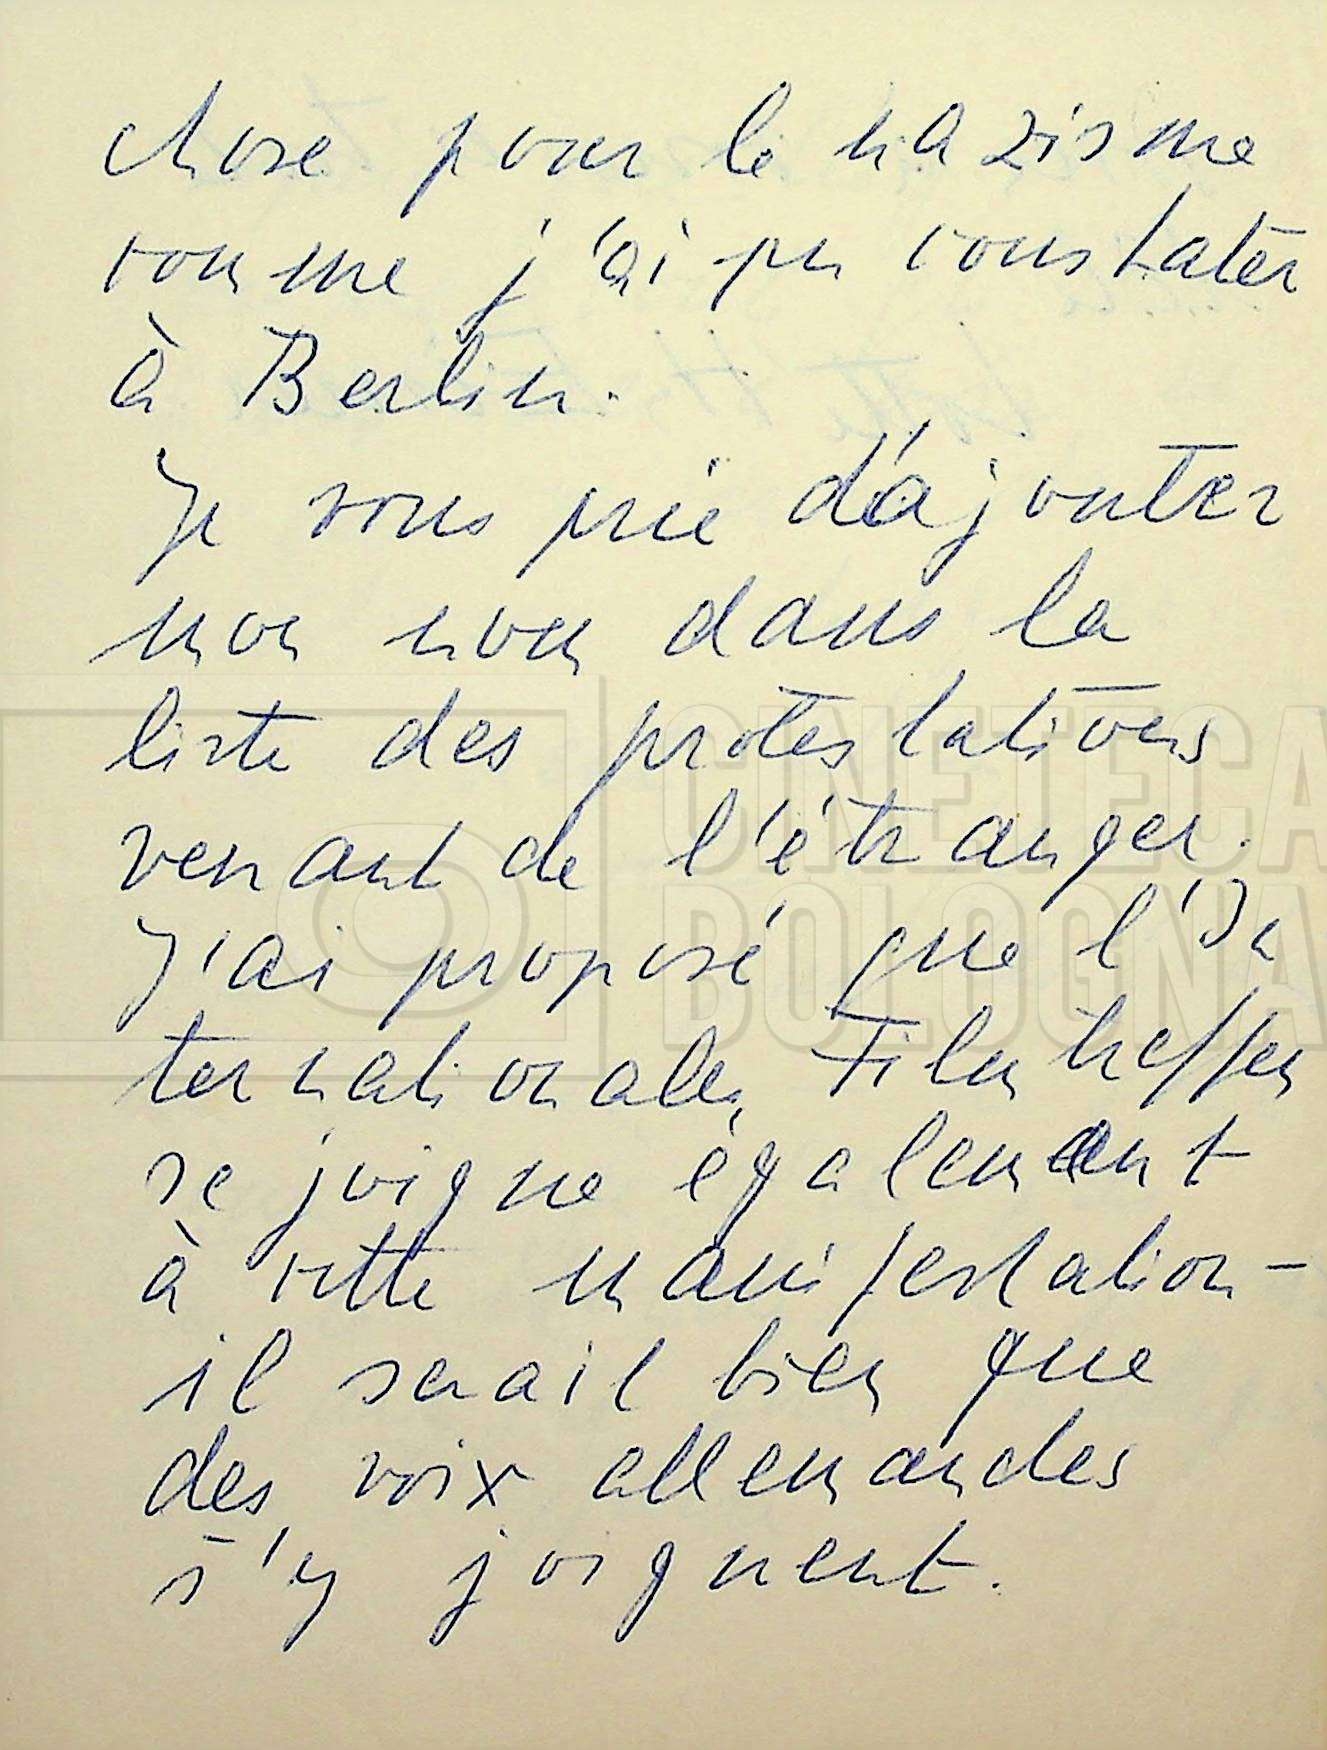 chose pour le nazisme
comme j'ai pu constater
à Berlin.
Je vous prie d'ajouter
mon nom dans la
liste des protestations
venant de l'étranger.
J'ai proposé que l'In
ternationales Filmtreffen
se joigne également
à cette manifestation –
il serait bien que
des voix allemandes
s'y joignent.
CINETECA
BOLOGNA